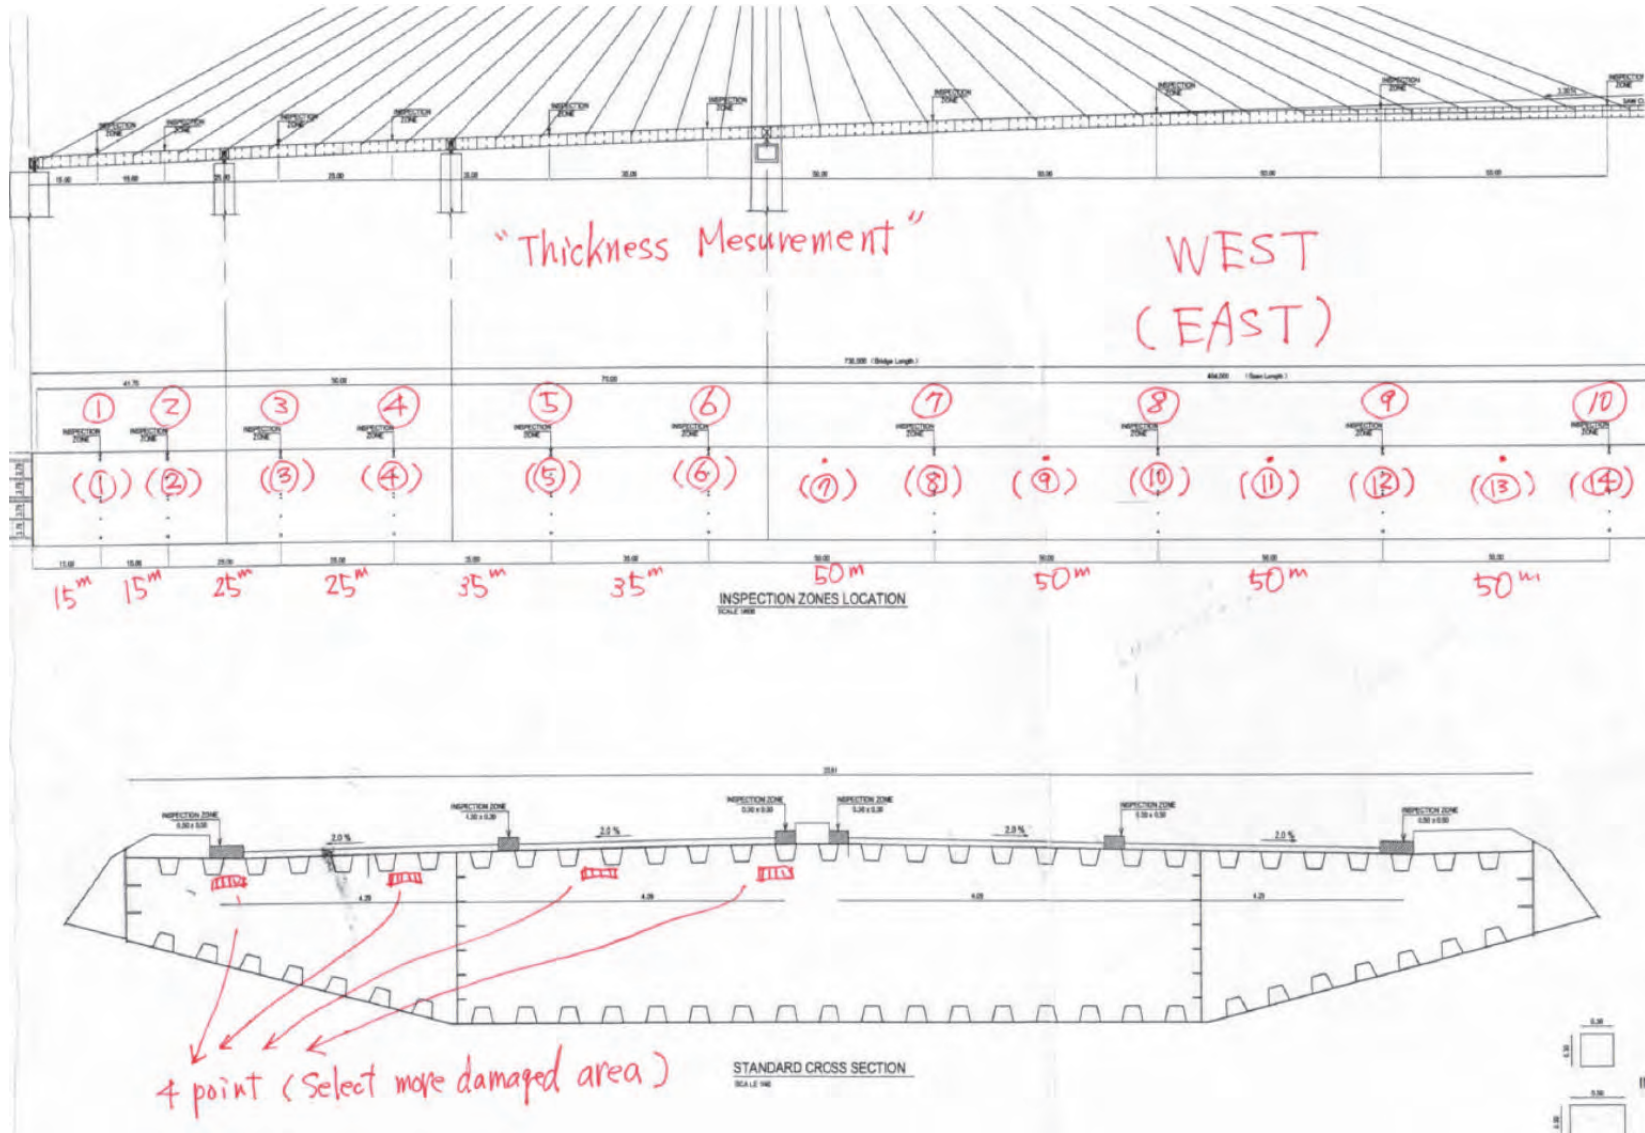 INSPECTION ZONE
INSPECTION ZONE
INSPECTION ZONE
INSPECTION ZONE
INSPECTION ZONE
INSPECTION ZONE
INSPECTION ZONE
INSPECTION ZONE
INSPECTION ZONE
INSPECTION ZONE
15.00 15.00 25.00 25.00 35.00 35.00 50.00 50.00 50.00 50.00
"Thickness Mesurement"
WEST
(EAST)
730,000 (Bridge Length)
41.70 50.00 70.00 (Span Length)
1 2 3 4 5 6 7 8 9 10
INSPECTION ZONE INSPECTION ZONE INSPECTION ZONE INSPECTION ZONE INSPECTION ZONE INSPECTION ZONE INSPECTION ZONE INSPECTION ZONE INSPECTION ZONE INSPECTION ZONE
3.75
3.75
3.75
3.75
(1) (2) (3) (4) (5) (6) (7) (8) (9) (10) (11) (12) (13) (14)
15.00 15.00 25.00 25.00 35.00 35.00 50.00 50.00 50.00 50.00
15m 15m 25m 25m 35m 35m 50m 50m 50m 50m
INSPECTION ZONES LOCATION
INSPECTION ZONE
0.50 x 0.50
INSPECTION ZONE
INSPECTION ZONE
0.30 x 0.30
INSPECTION ZONE
0.30 x 0.30
INSPECTION ZONE
0.30 x 0.30
INSPECTION ZONE
0.50 x 0.50
2.0 % 2.0 % 2.0 % 2.0 %
4 point (Select more damaged area)
STANDARD CROSS SECTION
0.30
0.30
0.50